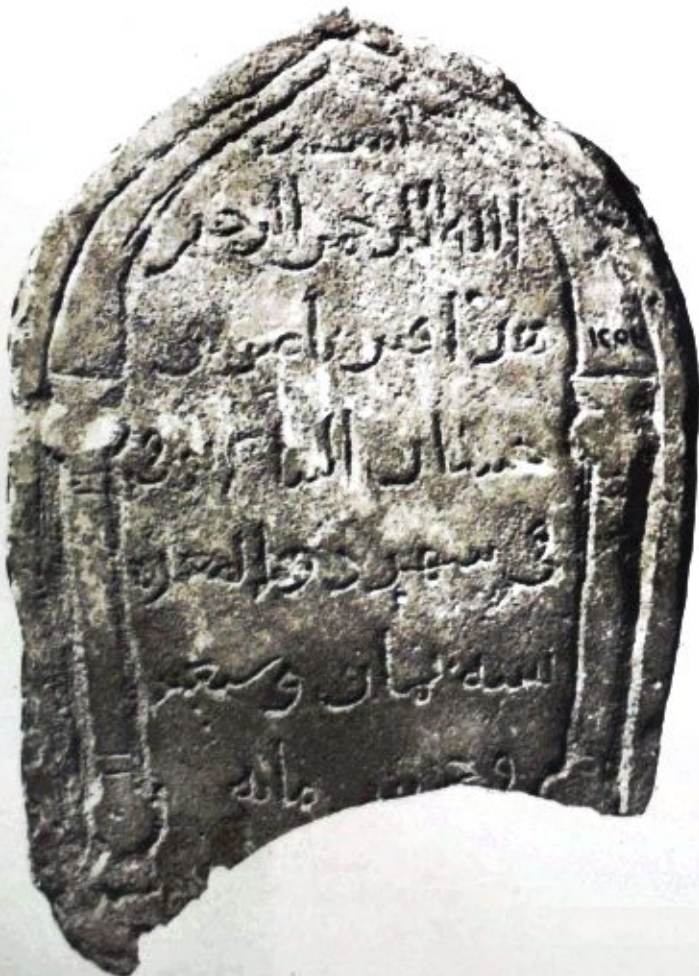 بسم
الله الرحمن الرحيم
هذا قبر بن
حسان توفي
في شهر ذو القعدة
سنة ثمان وسبعين
وخمس مائة